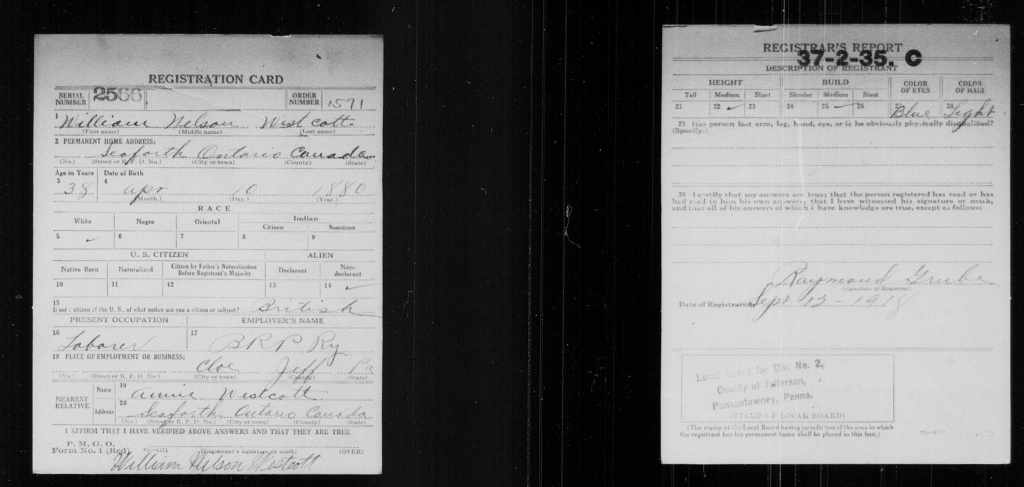 REGISTRATION CARD
SERIAL NUMBER 2566 ORDER NUMBER 1571
1 William Nelson Westcott
(First name) (Middle name) (Last name)
2 PERMANENT HOME ADDRESS:
Seaforth Ontario Canada
(No.) (Street or R. F. D. No.) (City or town) (County) (State)
Age in Years Date of Birth
3 38 4 Apr 10 1880
(Month.) (Day.) (Year.)
RACE
White Negro Oriental Indian
Citizen Noncitizen
5 ✓ 6 7 8 9
U. S. CITIZEN ALIEN
Native Born Naturalized Citizen by Father's Naturalization Before Registrant's Majority Declarant Non-declarant
10 11 12 13 14 ✓
15 If not a citizen of the U. S. of what nation are you a citizen or subject? British
PRESENT OCCUPATION EMPLOYER'S NAME
16 Laborer 17 B R P Ry
18 PLACE OF EMPLOYMENT OR BUSINESS:
Cloe Jeff Pa
(No.) (Street or R. F. D. No.) (City or town) (County) (State)
NEAREST RELATIVE Name 19 Annie Westcott
Address 20 Seaforth Ontario Canada
(No.) (Street or R. F. D. No.) (City or town) (County) (State)
I AFFIRM THAT I HAVE VERIFIED ABOVE ANSWERS AND THAT THEY ARE TRUE.
P. M. G. O.
Form No. 1 (Red) (Registrant's signature or mark) (OVER)
William Nelson Westcott
REGISTRAR'S REPORT
37-2-35. C
DESCRIPTION OF REGISTRANT
HEIGHT BUILD COLOR OF EYES COLOR OF HAIR
Tall Medium Short Slender Medium Stout
21 22 ✓ 23 24 25 ✓ 26 Blue 28 Light
29 Has person lost arm, leg, hand, eye, or is he obviously physically disqualified?
(Specify.)
30 I certify that my answers are true; that the person registered has read or has
had read to him his own answers; that I have witnessed his signature or mark,
and that all of his answers of which I have knowledge are true, except as follows:
Raymond Grube
(Signature of Registrar)
Date of Registration Sept 12 - 1918
Local Board for Div. No. 2,
County of Jefferson,
Punxsutawney, Penna.
(STAMP OF LOCAL BOARD)
(The stamp of the Local Board having jurisdiction of the area in which
the registrant has his permanent home shall be placed in this box.)